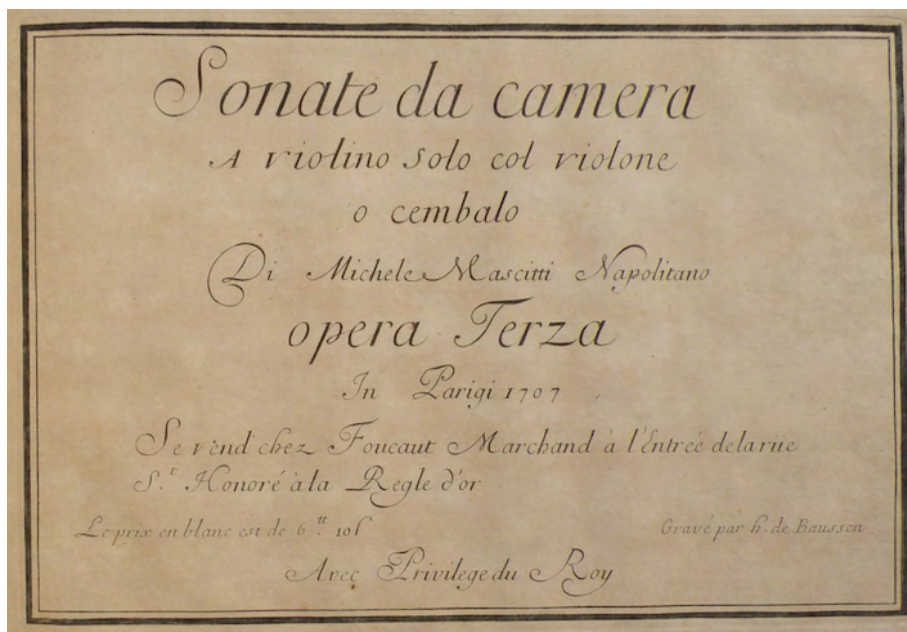 Sonate da camera
A violino solo col violone
o cembalo
Di Michele Mascitti Napolitano
opera Terza
In Parigi 1707
Se vend chez Foucaut Marchand à l'Entrée de la rüe
S.t Honoré à la Regle d'or
Le prix en blanc est de 6 tt. 10ſ
Gravé par h. de Baussen
Avec Privilege du Roy